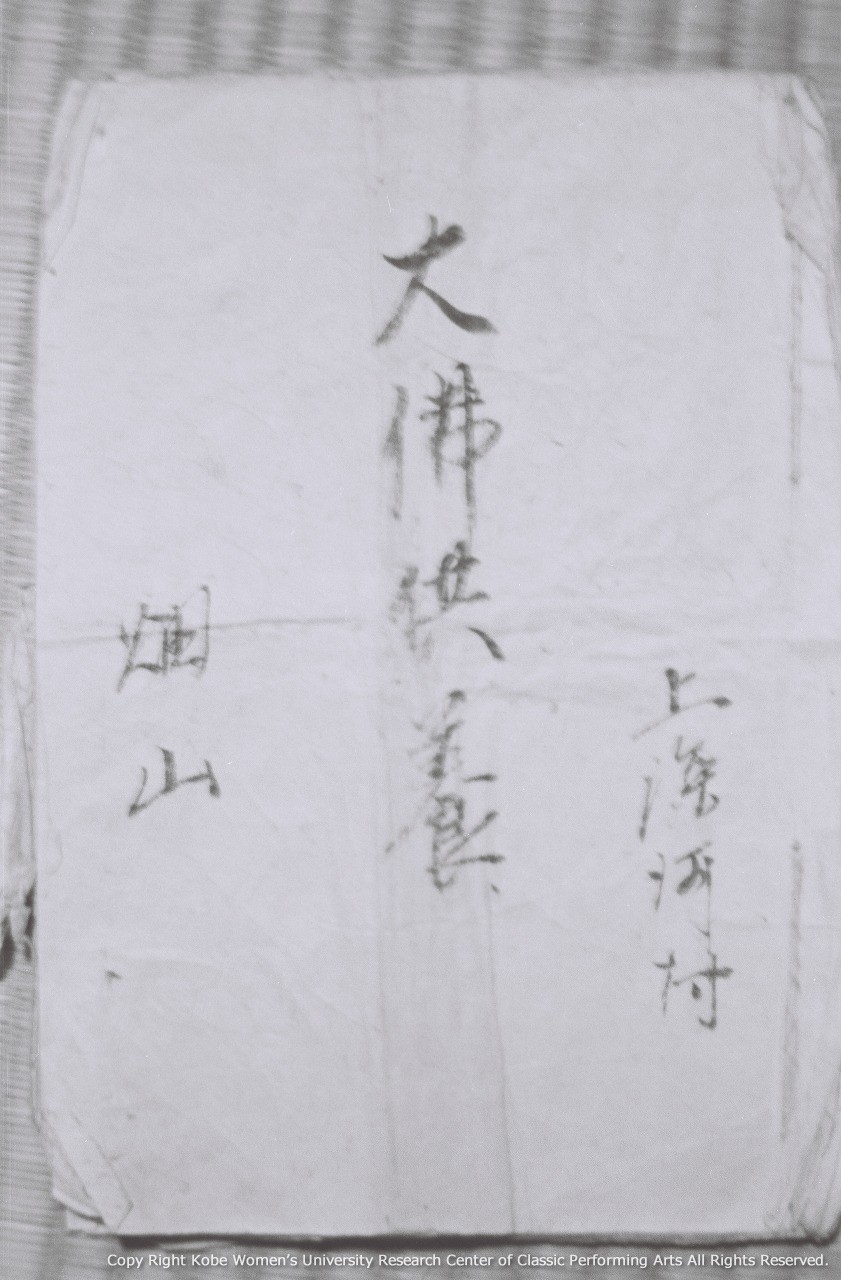 上深河村
大佛供養
畑山
Copy Right Kobe Women's University Research Center of Classic Performing Arts All Rights Reserved.